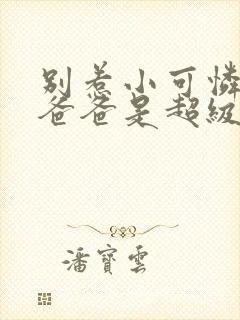 別惹小可憐
爸爸是超級
潘寶雲